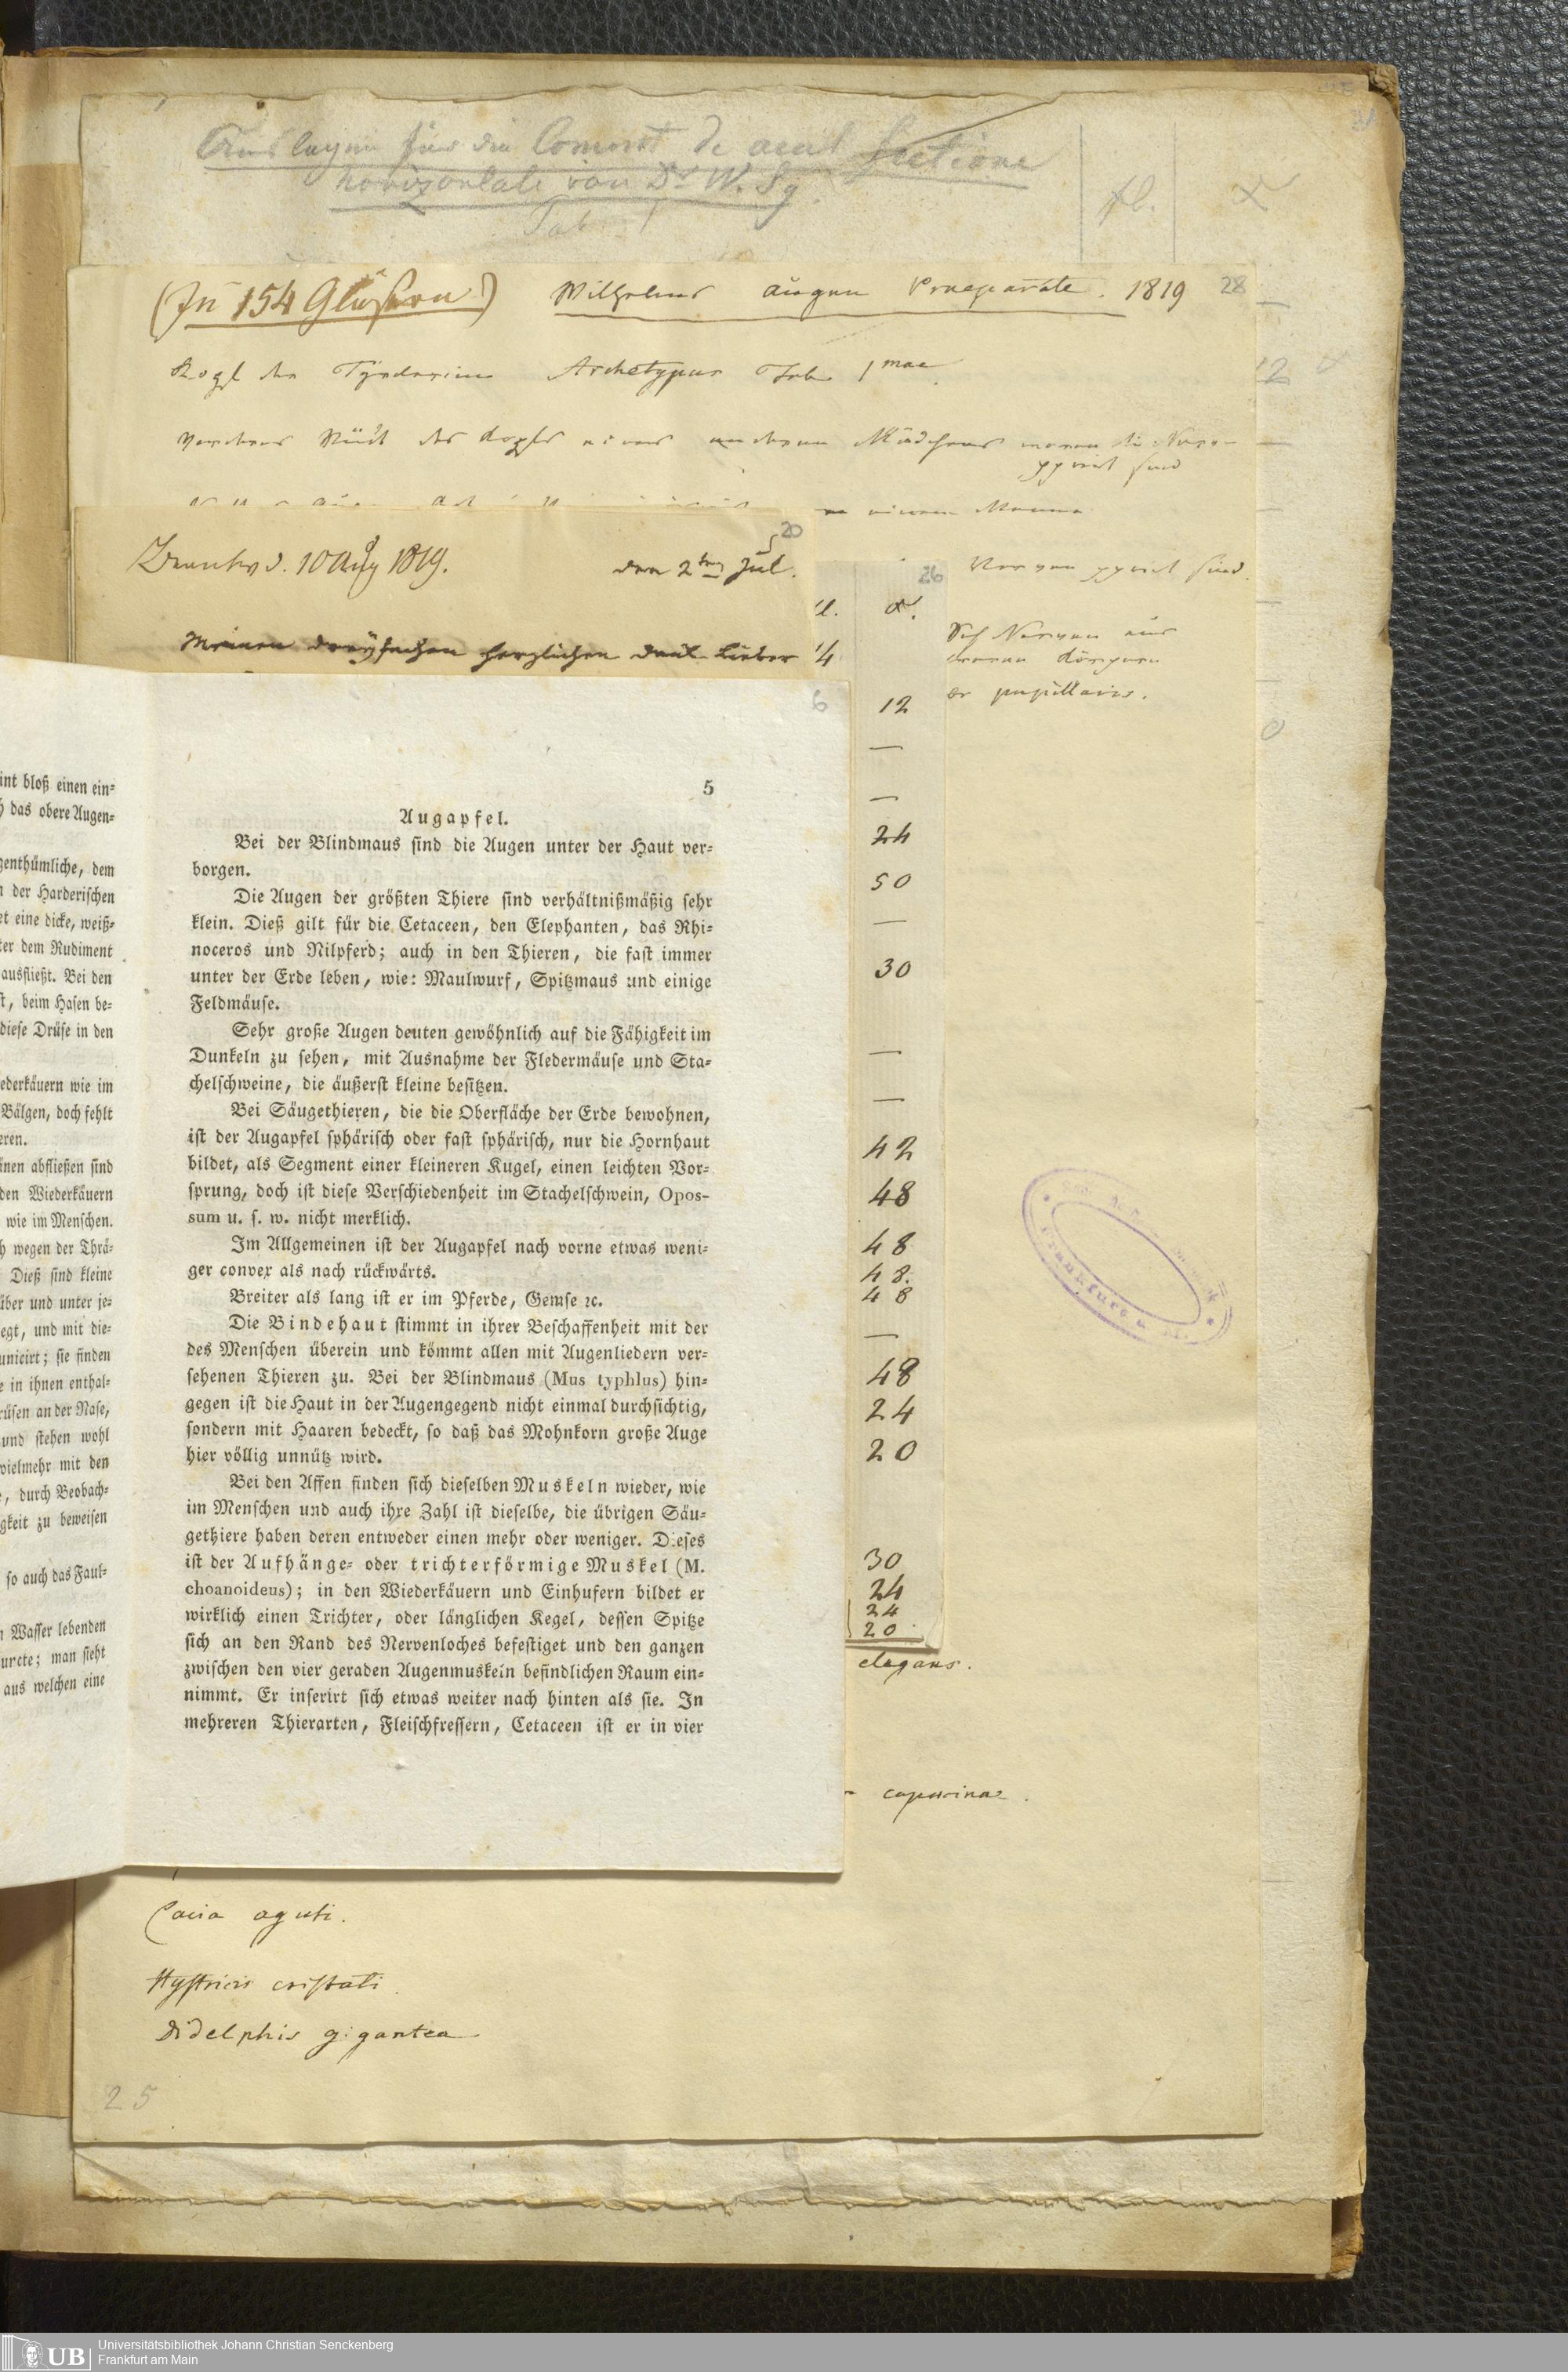 horizontale von Dr W. Sg.
Tab. I
fl.
(In 154 Gläsern) Wilhelms augen Praeparate. 1819 28
Archetypus Tab 1mae
12
20
d. 10 Aug 1819. den 2ten Jul.
Meinen dreyfachen herzlichen Lieber
26
12
—
—
24
50
—
30
—
—
42
48
48
48.
48
—
48
24
20
30
24
24
20
pupillaris.
elegans.
6
int bloß einen ein=
das obere Augen=
genthümliche, dem
der Harderischen
et eine dicke, weiß=
ter dem Rudiment
ausfließt. Bei den
t, beim Hasen be=
diese Drüse in den
ederkäuern wie im
Bälgen, doch fehlt
eren.
änen abfließen sind
den Wiederkäuern
wie im Menschen.
wegen der Thrä=
Dieß sind kleine
über und unter je=
egt, und mit die=
unicirt; sie finden
in ihnen enthal=
rüsen an der Nase,
und stehen wohl
vielmehr mit den
, durch Beobach=
gkeit zu beweisen
so auch das Faul=
Wasser lebenden
urcte; man sieht
aus welchen eine
5
Augapfel.
Bei der Blindmaus sind die Augen unter der Haut ver=
borgen.
Die Augen der größten Thiere sind verhältnißmäßig sehr
klein. Dieß gilt für die Cetaceen, den Elephanten, das Rhi=
noceros und Nilpferd; auch in den Thieren, die fast immer
unter der Erde leben, wie: Maulwurf, Spitzmaus und einige
Feldmäuse.
Sehr große Augen deuten gewöhnlich auf die Fähigkeit im
Dunkeln zu sehen, mit Ausnahme der Fledermäuse und Sta=
chelschweine, die äußerst kleine besitzen.
Bei Säugethieren, die die Oberfläche der Erde bewohnen,
ist der Augapfel sphärisch oder fast sphärisch, nur die Hornhaut
bildet, als Segment einer kleineren Kugel, einen leichten Vor=
sprung, doch ist diese Verschiedenheit im Stachelschwein, Opos-
sum u. s. w. nicht merklich.
Im Allgemeinen ist der Augapfel nach vorne etwas weni=
ger convex als nach rückwärts.
Breiter als lang ist er im Pferde, Gemse ꝛc.
Die Bindehaut stimmt in ihrer Beschaffenheit mit der
des Menschen überein und kömmt allen mit Augenliedern ver=
sehenen Thieren zu. Bei der Blindmaus (Mus typhlus) hin=
gegen ist die Haut in der Augengegend nicht einmal durchsichtig,
sondern mit Haaren bedeckt, so daß das Mohnkorn große Auge
hier völlig unnütz wird.
Bei den Affen finden sich dieselben Muskeln wieder, wie
im Menschen und auch ihre Zahl ist dieselbe, die übrigen Säu=
gethiere haben deren entweder einen mehr oder weniger. Dieses
ist der Aufhänge= oder trichterförmige Muskel (M.
choanoideus); in den Wiederkäuern und Einhufern bildet er
wirklich einen Trichter, oder länglichen Kegel, dessen Spitze
sich an den Rand des Nervenloches befestiget und den ganzen
zwischen den vier geraden Augenmuskeln befindlichen Raum ein=
nimmt. Er inserirt sich etwas weiter nach hinten als sie. In
mehreren Thierarten, Fleischfressern, Cetaceen ist er in vier
Frankfurt a. M.
Cavia aguti.
Hystricis cristati.
Didelphis gigantea
25
UB
Universitätsbibliothek Johann Christian Senckenberg
Frankfurt am Main